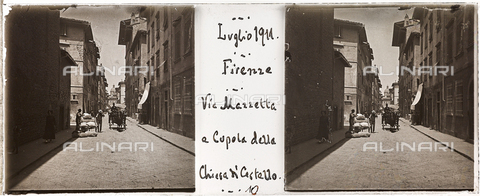 Luglio 1911.
Firenze
Via Mazzetta
e Cupola della
Chiesa di Cestello.
10
ALINARI
ALINARI
ALINARI
ALINARI
ALINARI